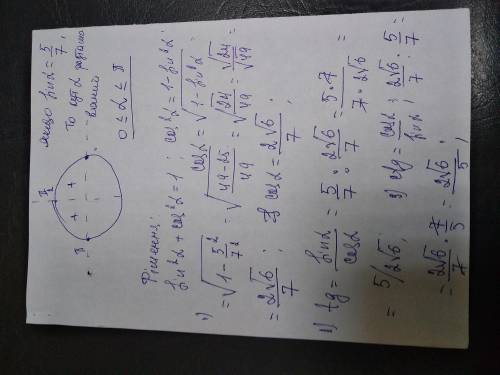 якщо sinα = 5/7,
то кут α
0 ≤ α ≤ π
π/2
π
+ +
- -
Рішення:
sin²α + cos²α = 1; cos²α = 1 - sin²α;
1) cosα = √(1 - sin²α)
= √(1 - 5²/7²) = √((49-25)/49) = √(24/49) = √24/√49
= 2√6/7; cosα = 2√6/7;
tg = sinα/cosα = 5/7 : 2√6/7 = 5·7/(7·2√6) =
= 5/2√6; 3) ctg = cosα/sinα; 2√6/7 : 5/7 =
= 2√6/7 · 7/5 = 2√6/5;